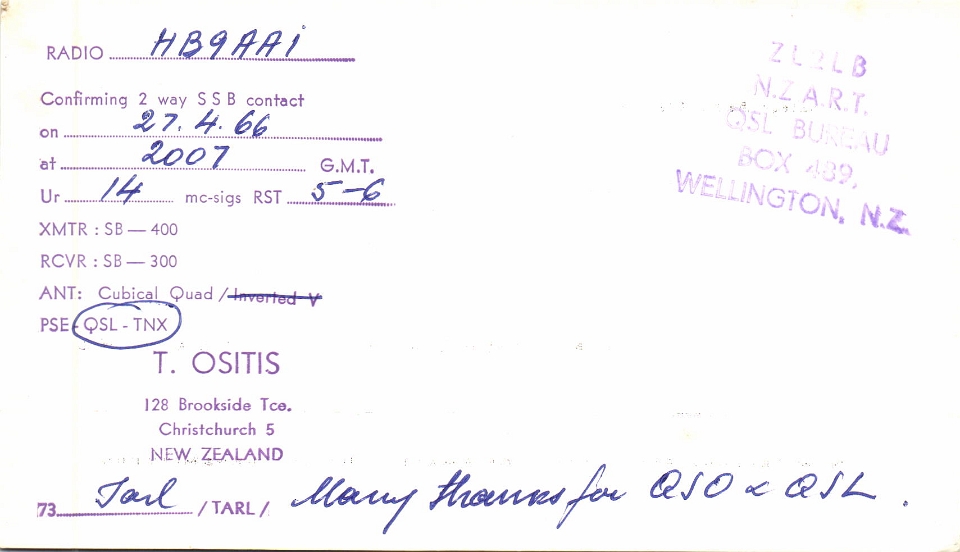 RADIO HB9AAI
Confirming 2 way SSB contact
on 27.4.66
at 2007 G.M.T.
Ur 14 mc-sigs RST 5-6
XMTR : SB — 400
RCVR : SB — 300
ANT: Cubical Quad / Inverted V
PSE - QSL - TNX
T. OSITIS
128 Brookside Tce.
Christchurch 5
NEW ZEALAND
73 Tarl / TARL / Many thanks for QSO & QSL.
ZL2LB
N.Z.A.R.T.
QSL BUREAU
BOX 489,
WELLINGTON, N.Z.